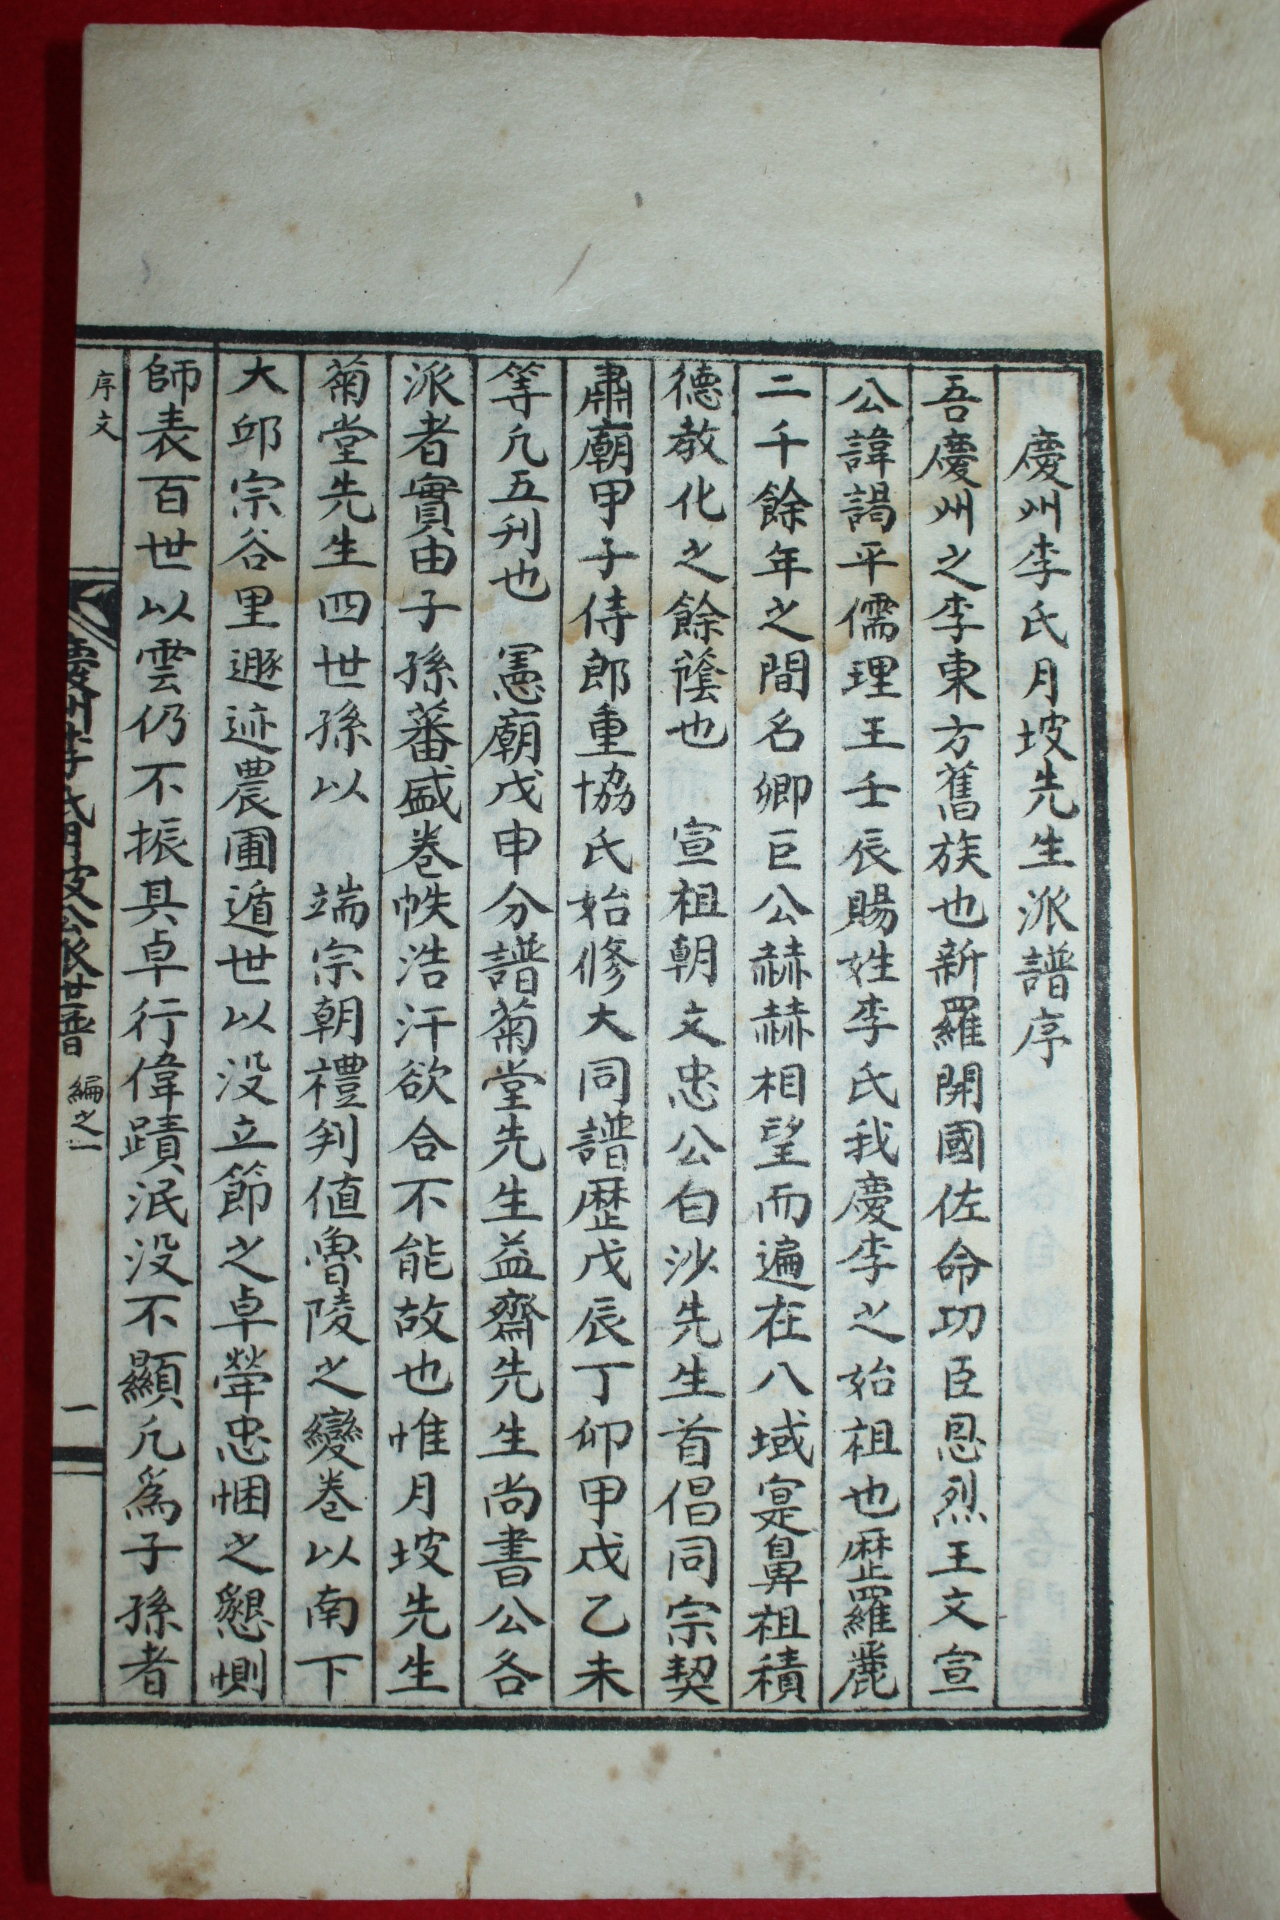 慶州李氏月坡先生派譜序
吾慶州之李東方舊族也新羅開國佐命功臣恩烈王文宣
公諱謁平儒理王壬辰賜姓李氏我慶李之始祖也歷羅麗
二千餘年之間名卿巨公赫赫相望而遍在八域寔鼻祖積
德教化之餘蔭也　宣祖朝文忠公白沙先生首倡同宗契
肅廟甲子侍郎重協氏始修大同譜歷戊辰丁卯甲戌乙未
等凡五刋也　憲廟戊申分譜菊堂先生益齋先生尚書公各
派者實由子孫蕃盛卷帙浩汗欲合不能故也惟月坡先生
菊堂先生四世孫以　端宗朝禮判値魯陵之變卷以南下
大邱宗谷里遯迹農圃遁世以没立節之卓犖忠悃之懇惻
師表百世以雲仍不振其卓行偉蹟泯没不顯凡爲子孫者
序文
慶州李氏月坡公派世譜 編之一
一